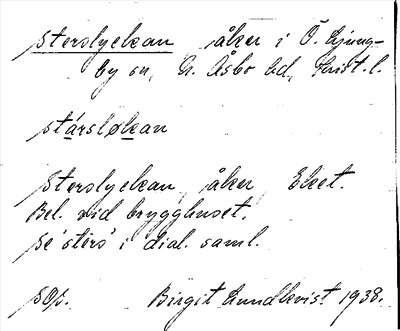 Sterslyckan åker i Ö. Ljung-
by sn, N. Åsbo hd, Krist. l.
stárslø̱kan
Sterslyckan, åker, Eket.
Bel. vid brygghuset.
Se 'stérs' i dial. saml.
sop. Birgit Lundkvist 1938.